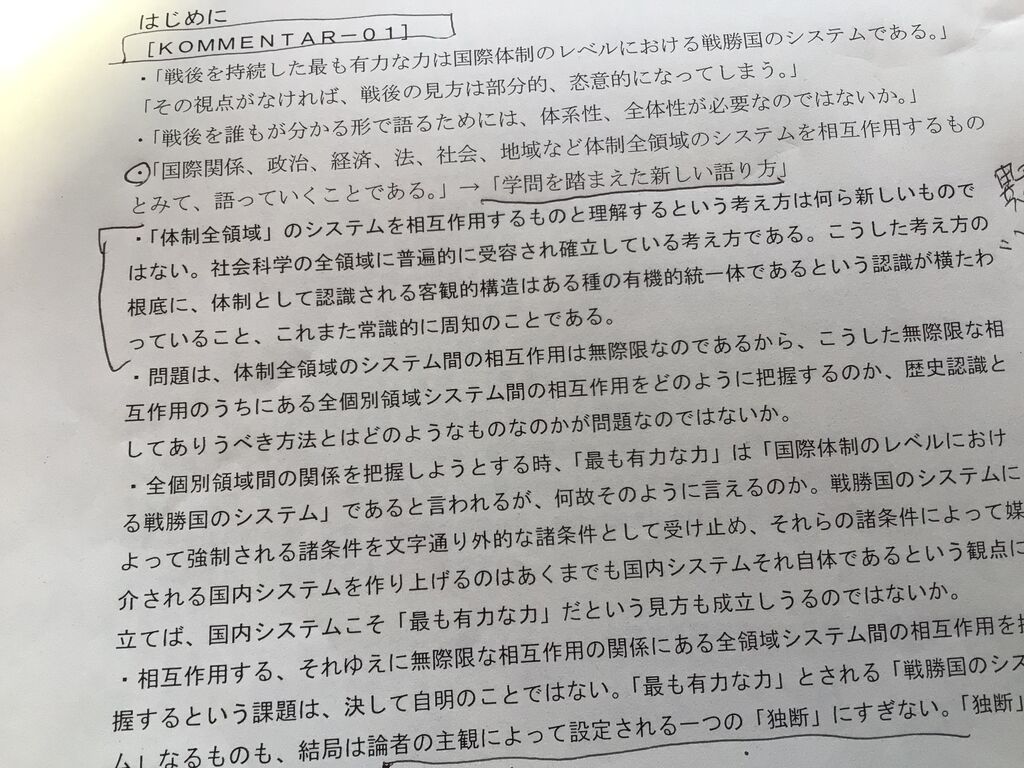 はじめに
[KOMMENTAR-01]
・「戦後を持続した最も有力な力は国際体制のレベルにおける戦勝国のシステムである。」
「その視点がなければ、戦後の見方は部分的、恣意的になってしまう。」
・「戦後を誰もが分かる形で語るためには、体系性、全体性が必要なのではないか。」
・「国際関係、政治、経済、法、社会、地域など体制全領域のシステムを相互作用するもの
とみて、語っていくことである。」→「学問を踏まえた新しい語り方」
・「体制全領域」のシステムを相互作用するものと理解するという考え方は何ら新しいもので
はない。社会科学の全領域に普遍的に受容され確立している考え方である。こうした考え方の
根底に、体制として認識される客観的構造はある種の有機的統一体であるという認識が横たわ
っていること、これまた常識的に周知のことである。
・問題は、体制全領域のシステム間の相互作用は無際限なのであるから、こうした無際限な相
互作用のうちにある全個別領域システム間の相互作用をどのように把握するのか、歴史認識と
してありうべき方法とはどのようなものなのかが問題なのではないか。
・全個別領域間の関係を把握しようとする時、「最も有力な力」は「国際体制のレベルにおけ
る戦勝国のシステム」であると言われるが、何故そのように言えるのか。戦勝国のシステムに
よって強制される諸条件を文字通り外的な諸条件として受け止め、それらの諸条件によって媒
介される国内システムを作り上げるのはあくまでも国内システムそれ自体であるという観点に
立てば、国内システムこそ「最も有力な力」だという見方も成立しうるのではないか。
・相互作用する、それゆえに無際限な相互作用の関係にある全領域システム間の相互作用を
握するという課題は、決して自明のことではない。「最も有力な力」とされる「戦勝国のシス
ム」なるものも、結局は論者の主観によって設定される一つの「独断」にすぎない。「独断」